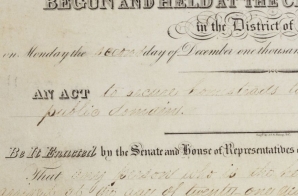 BEGUN AND HELD AT THE
in the District of
on Monday the second day of December one thousand
AN ACT to secure homesteads to
public domain.
Be It Enacted by the Senate and House of Representatives
That any person who is the
of twenty one